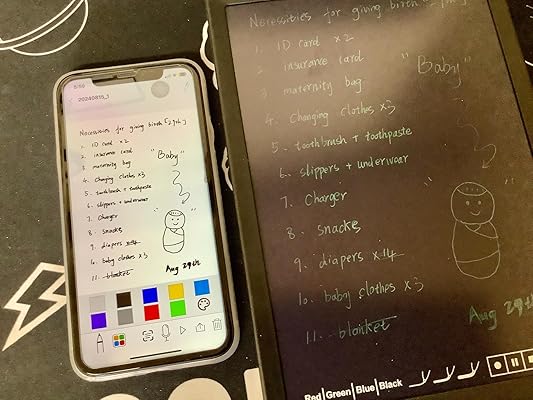 5:50
20240815_1
Necessities for giving birth [29th]
1. ID card x2
2. insurance card
3. maternity bag
"Baby"
4. Changing clothes x3
5. toothbrush + toothpaste
6. slippers + underwear
7. Charger
8. snacks
9. diapers x14
10. baby clothes x3
11. blanket
Aug 29th
Necessities for giving birth
1. ID card x2
2. insurance card
3. maternity bag
"Baby"
4. Changing clothes x3
5. toothbrush + toothpaste
6. slippers + underwear
7. Charger
8. snacks
9. diapers x14
10. baby clothes x3
11. blanket
Aug 29th
Red|Green|Blue|Black